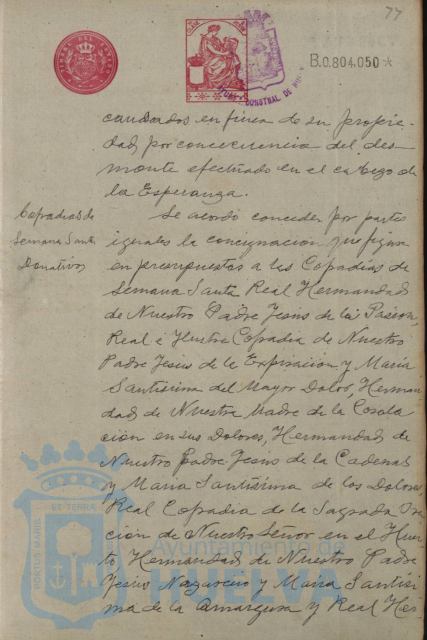 77
B.0.804.050*
causados en finca de su propie-
dad por consecuencia del des-
monte efectuado en el cabezo de
la Esperanza.
Cofradias de
Semana Santa
Donativos
Se acordó conceder por partes
iguales la consignación que figura
en presupuestos a las Cofradías de
Semana Santa Real Hermandad
de Nuestro Padre Jesús de la Pasión,
Real e Ilustre Cofradia de Nuestro
Padre Jesús de la Expiración y María
Santísima del Mayor Dolor, Herman-
dad de Nuestra Madre de la Consola
ción en sus Dolores, Hermandad de
Nuestro Padre Jesús de la Cadenas
y María Santísima de los Dolores,
Real Cofradia de la Sagrada Ora
ción de Nuestro Señor en el Huer-
to, Hermandad de Nuestro Padre
Jesús Nazareno y María Santísi
ma de la Amargura y Real Her
PORTUS MARIS ET TERRAE
Ayuntamiento de
HUELVA